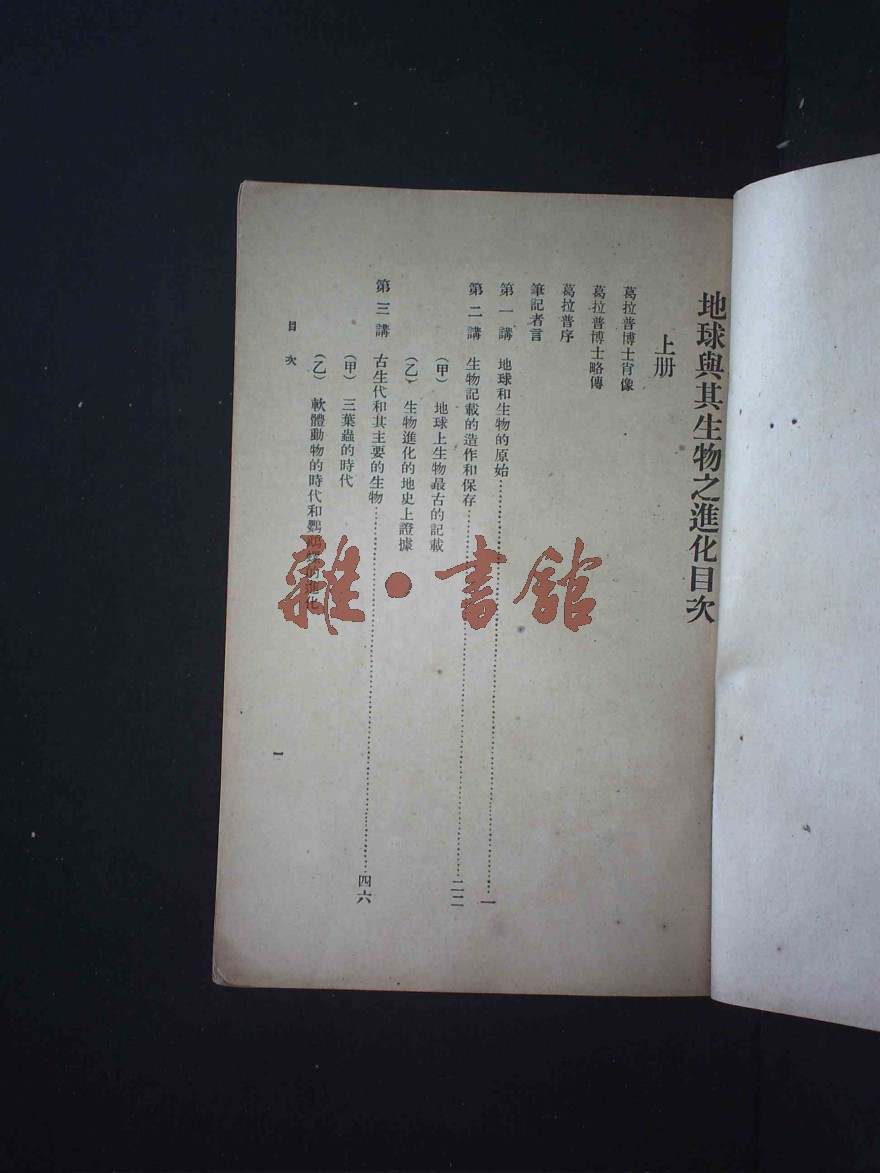 地球與其生物之進化目次
上册
葛拉普博士肖像
葛拉普博士略傳
葛拉普序
筆記者言
第一講 地球和生物的原始……一
第二講 生物記載的造作和保存……二二
(甲) 地球上生物最古的記載
(乙) 生物進化的地史上證據
第三講 古生代和其主要的生物……四六
(甲) 三葉蟲的時代
(乙) 軟體動物的時代和鸚鵡螺的進化
目次
一
雜·書館